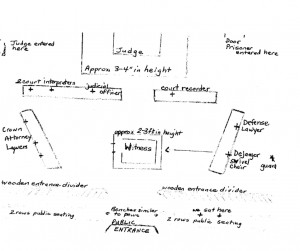 Judge entered
here
Judge
Approx 3-4" in height
'Door'
Prisoner
entered here
2 court interpreters
judicial
officer
court recorder
Crown
Attorney
Lawyers
approx 2-3ft in height
Witness
Defense
Lawyer
Dejager
swivel
chair
guard
wooden entrance divider
wooden entrance divider
2 rows public seating
Benches similar
to pews
we sat here
2 rows public seating
PUBLIC
ENTRANCE